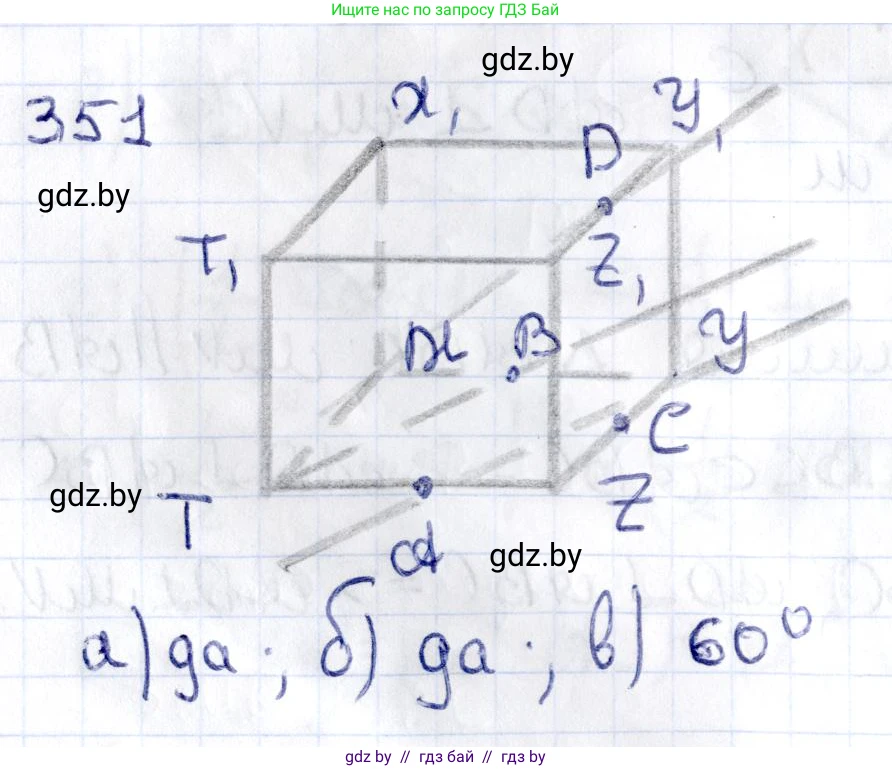 Ищите нас по запросу ГДЗ Бай
gdz.by
351
X₁
У₁
D
gdz.by
T₁
Z₁
X
B
У
C
gdz.by
T
Z
A
gdz.by
а) да; б) да; в) 60°
gdz.by // гдз бай // gdz by